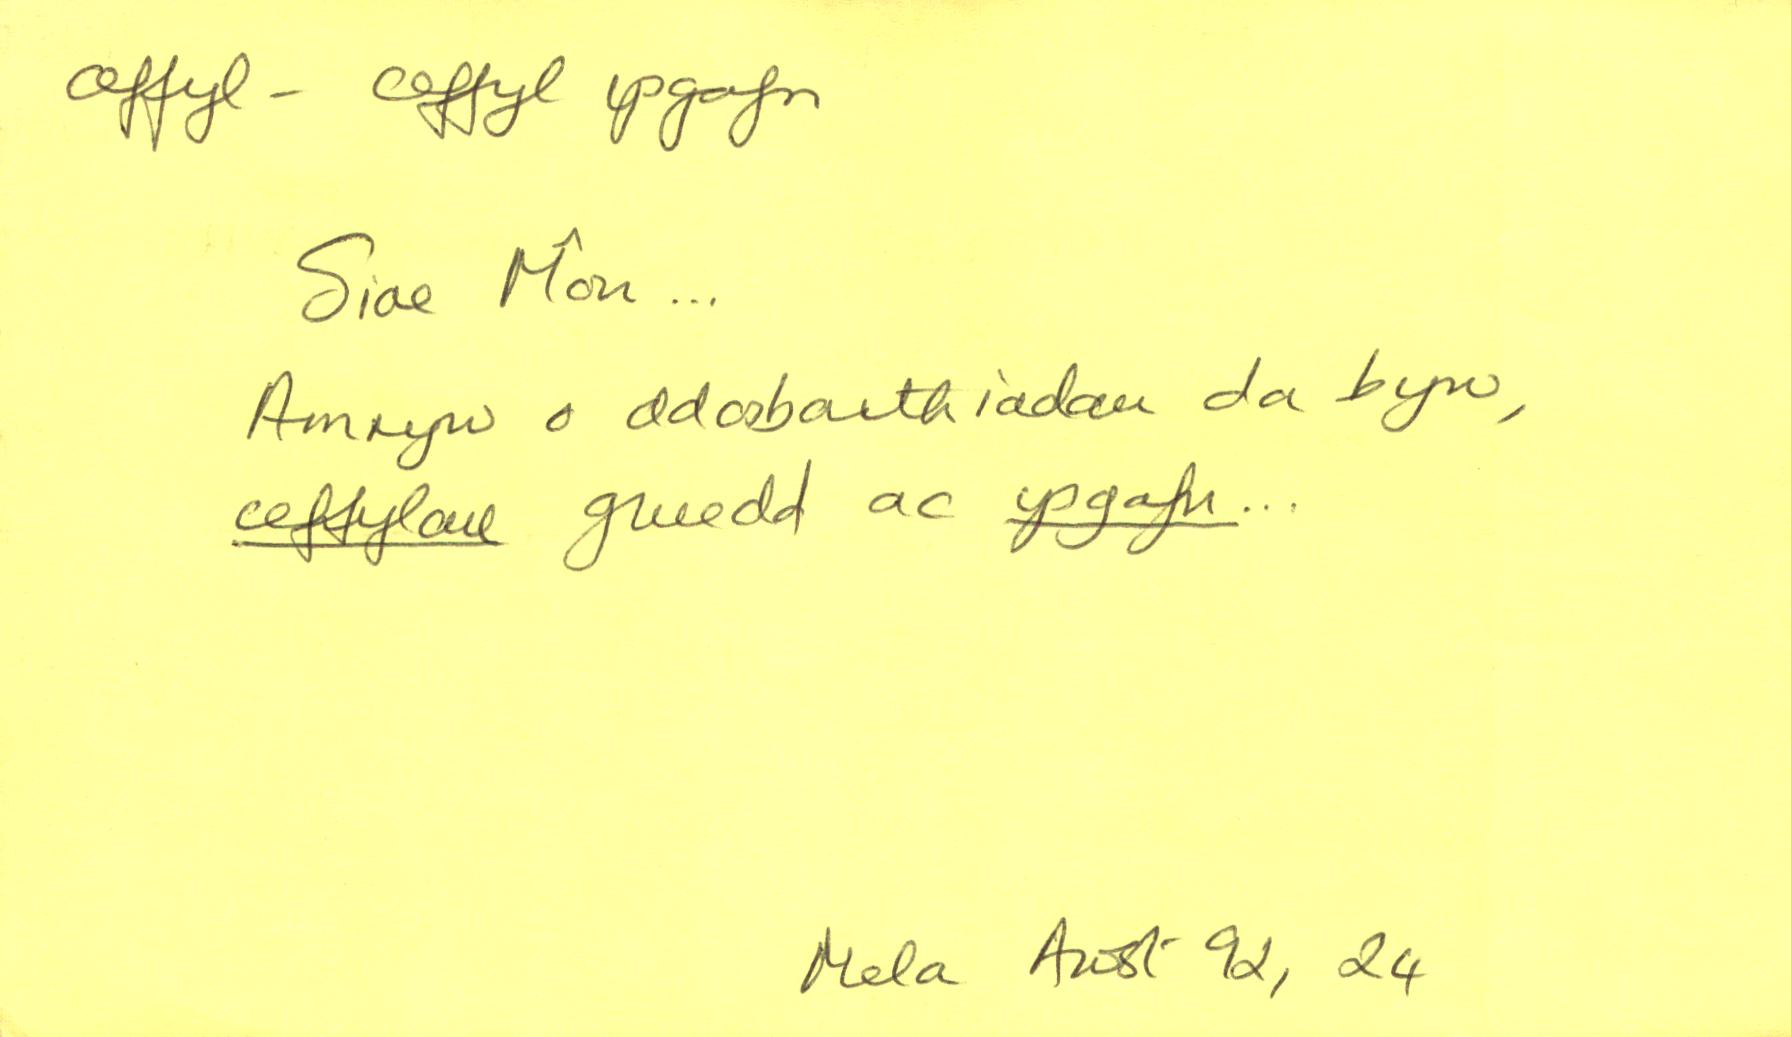 ceffyl - ceffyl ysgafn
Sioe Môn ...
Amryw o ddosbarthiadau da byw,
ceffylau gwedd ac ysgafn...
Mela Awst 92, 24